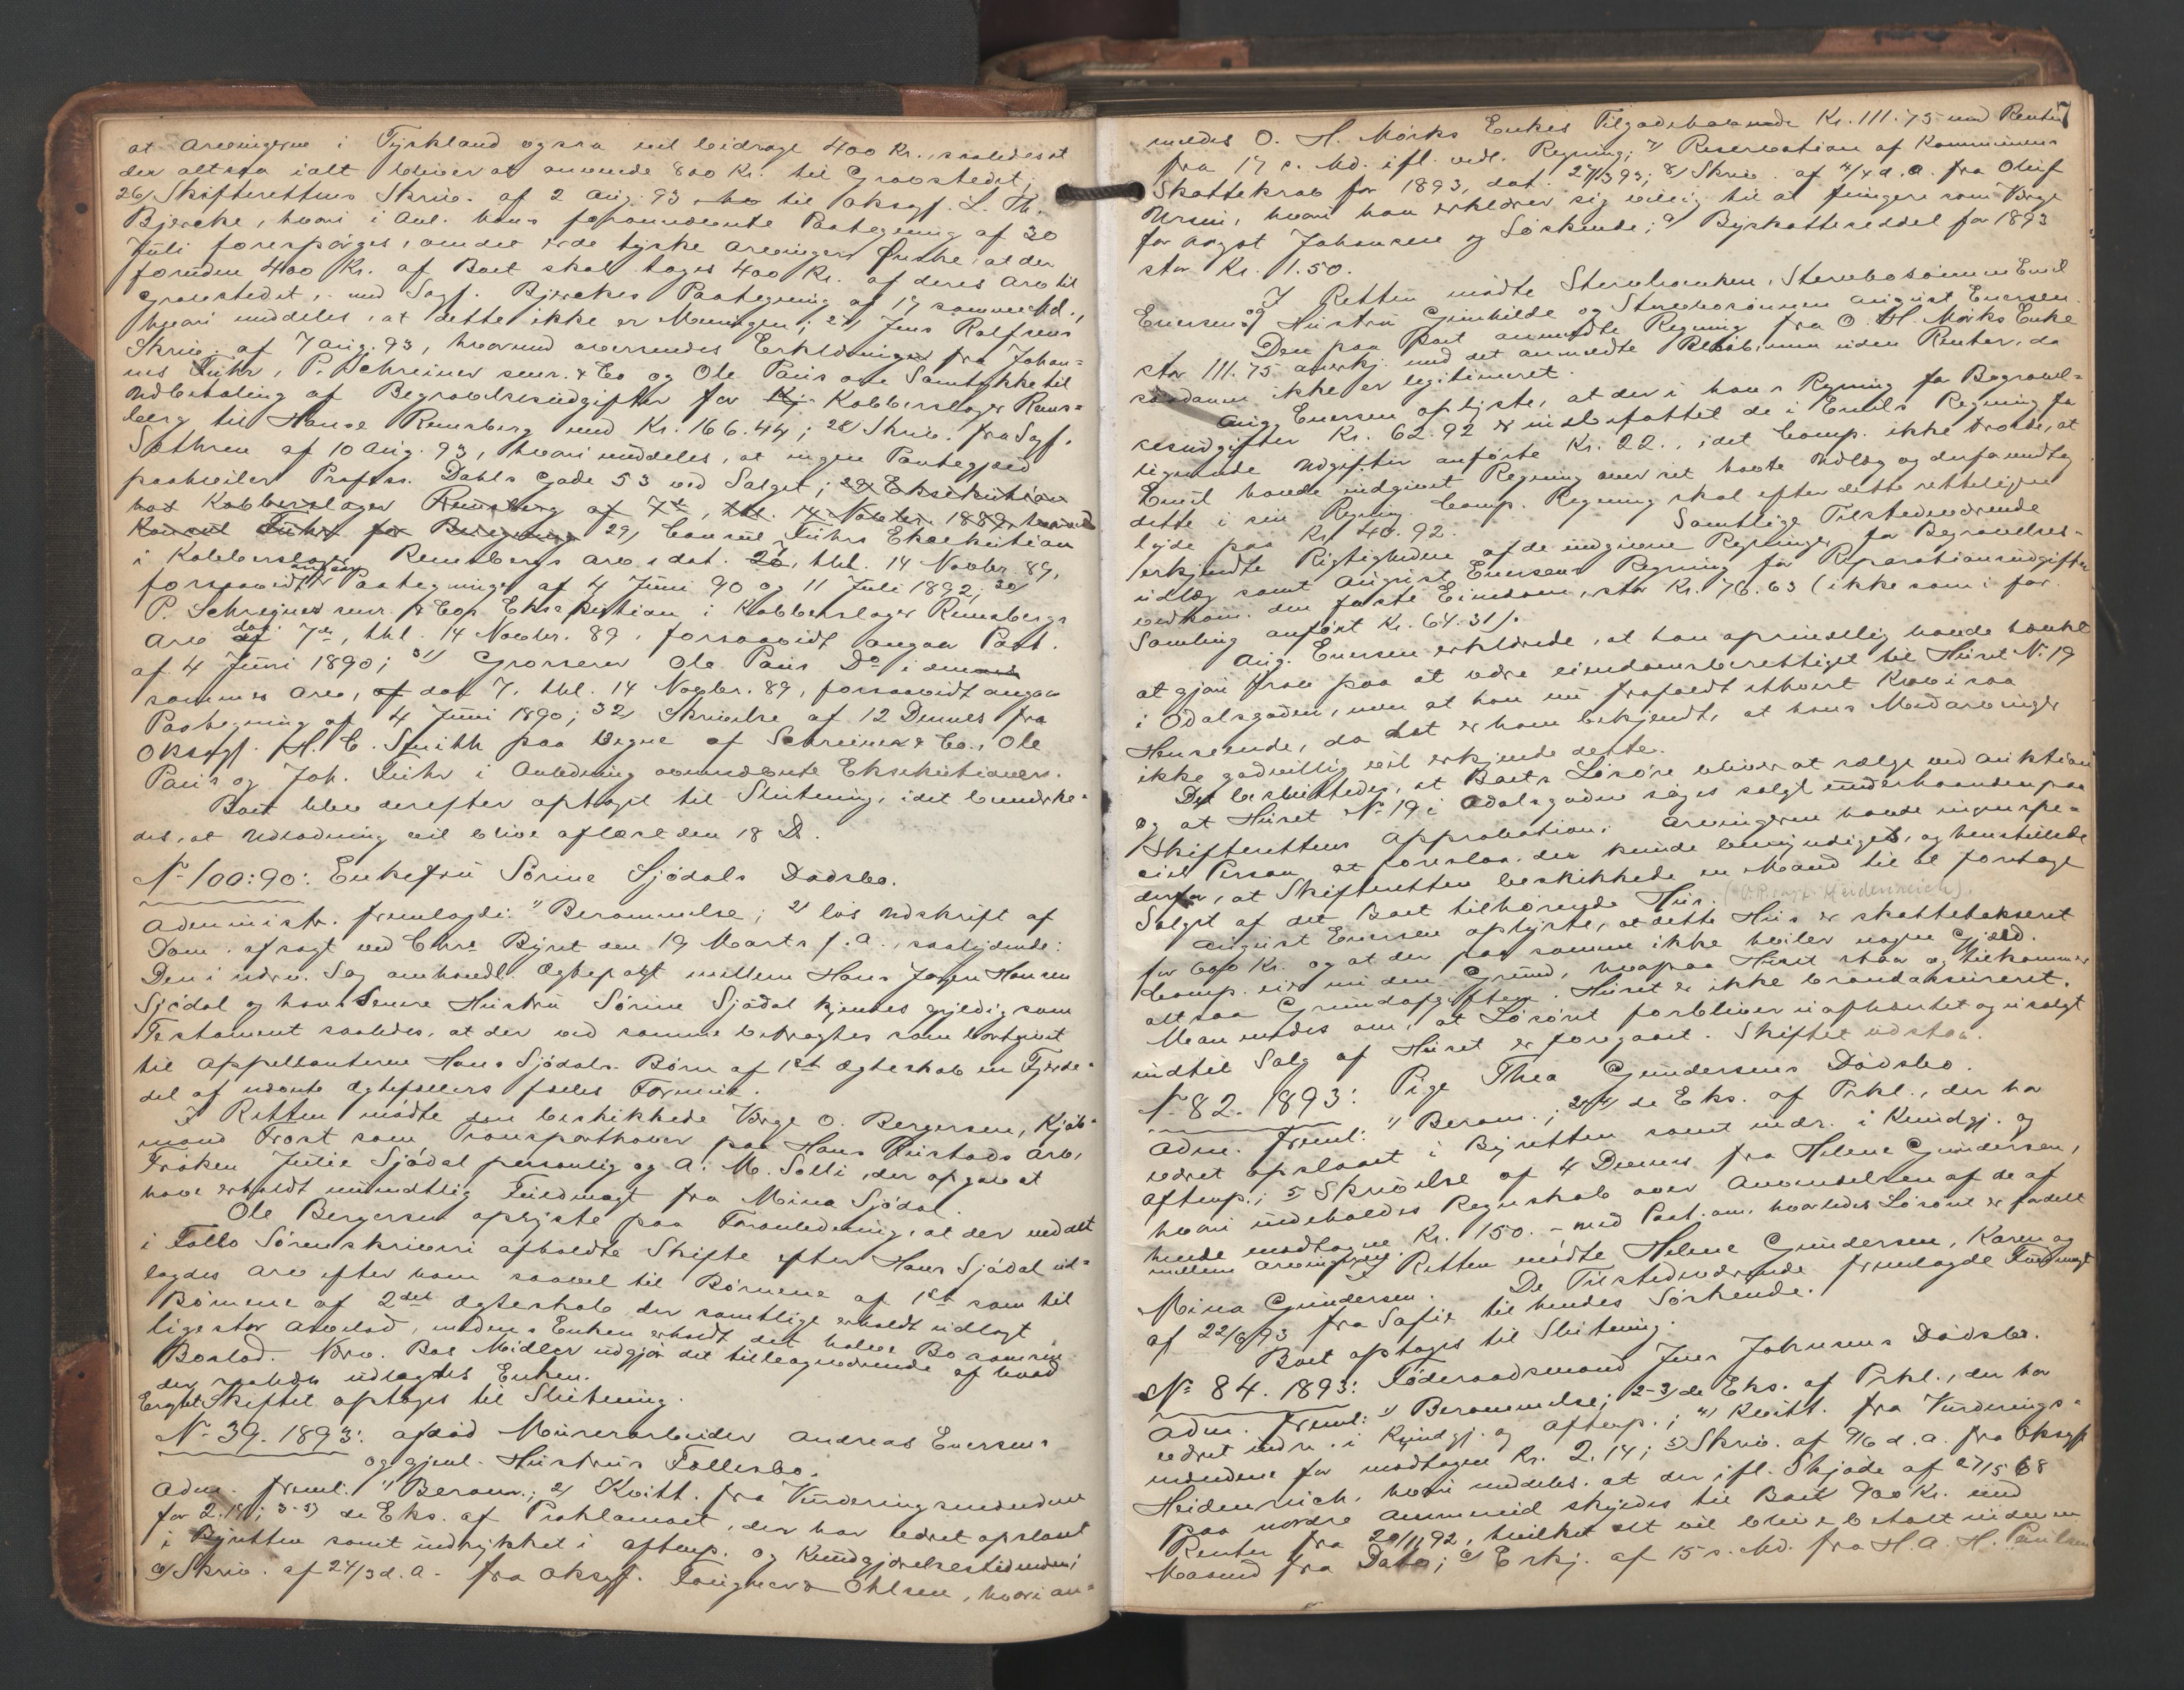 at Arvingerne i Tyskland ogsaa vil bidrage 400 Kr., saaledes at
der altsaa ialt bliver at anvende 800 Kr. til Gravstedet;
26) Skifterettens Skriv. af 2 Aug. 93 til Oksgf. L. Th.
Bjercke, hvori i Anl. hans forannævnte Paategning af 30
Juli forespørges, om det er de tyske Arvingers Ønske, at der
foruden 400 Kr. af Boet skal tages 400 Kr. af deres Arv til
Gravstedet, med Sagf. Bjerckes Paategning af 19 samme Md.,
hvori meddeles, at dette ikke er Meningen; 27) Jens Rolfsens
Skriv. af 7 Aug. 93, hvorved oversendes Erklæringer fra Johan-
nes Führ, P. Schreiner senr. & Co og Ole Paus om Samtykke til
Udbetaling af Begravelsesudgifter for Kobberslager Rens-
berg til Hanse Rensberg med Kr. 166.44; 28) Skriv. fra Sagf.
Sæthren af 10 Aug. 93, hvori meddeles, at ingen Pantegjæld
paahviler Profess. Dahls Gade 53 ved Salget; 29) Eksekution
hos Kobberslager Rensberg af 7de, thl. 14 Novbr. 1889
Konsul Führ for 29) Consul Führs Eksekution
i Kobberslager Rensbergs Arv, dat. 26, thl. 14 Novbr. 89,
forsaavidt angaar Paategninger af 4 Juni 90 og 11 Juli 1892; 30)
P. Schreiner senr. & Cop. Eksekution i Kobberslager Rensbergs
Arv dat. 7de, thl. 14 Novbr. 89, forsaavidt angaar Paat.
af 4 Juni 1890; 31) Grosserer Ole Paus Do i
sammes Arv, af dat 7, thl. 14 Novbr. 89, forsaavidt angaar
Paategning af 4 Juni 1890; 32) Skrivelse af 12 Dennes fra
Oksagf. H. C. Smith paa Vegne af Schreiner & Co., Ole
Paus og Joh. Führ i Anledning ovennævnte Eksekutioner.
Boet blev derefter optaget til Slutning, idet bemærke-
des, at Udlodning vil blive aflæst den 18 Ds.
No 100:90: Enkefru Sørine Sjødals Dødsbo.
Administr. fremlagde: 1) Berammelse; 2) løs Udskrift af
Dom afsagt ved Chra Byret den 19 Marts f. A., saalydende:
Den i nærv. Sag omhandl. Ægtepagt mellem Hans Jørgen Hansen
Sjødal og hans senere Hustru Sørine Sjødal kjendes gyldig som
Testament saaledes, at der ved samme betragtes som bortgivet
til Appellanterne Hans Sjødals Børn af 1ste Ægteskab en Fjerde-
del af nævnte Ægtefællers fælles Formue.
I Retten mødte den beskikkede Værge O. Bergersen, Kjøb-
mand Frost som Transporthaver paa Hans Rustads Arv,
Frøken Julie Sjødal personlig og A. M. Solli, der opgav at
have erholdt mundtlig Fuldmagt fra Mina Sjødal.
Ole Bergersen oplyste paa Foranledning, at der ved det
i Follo Sorenskriveri afholdte Skifte efter Hans Sjødal ud-
lagdes Arv efter ham saavel til Børnene af 1ste som til
Børnene af 2det Ægteskab der samtlige erholdt udlagt
lige stor Arvelod, medens Enken erholdt det halve Bo som sin
Boslod. Nærv. Bos Midler udgjør det tilbageværende af hvad
der saaledes udlagdes Enken.
Skiftet optoges til Slutning.
No 39. 1893: afdød Murerarbeider Andreas Evensens
og gjenl. Hustrus Fællesbo.
Adm. freml. 1) Beram.; 2) Kvitt. fra Vurderingsmændene
for 2.14; 3-5) de Eks. af Proklamaet, der har været opslaaet
i Byretten samt indrykket i Aftenp. og Kundgjørelsestidende;
6) Skriv. af 24/3 d. A. fra Oksgf. Fougner & Ohlsen, hvori an-
7
meldes O. H. Mørks Enkes Tilgodehavende Kr. 111.75 med Renter
fra 17 s. Md. ifl. vedl. Regning; 7) Reservation af Kommunens
Skattekrav for 1893, dat. 27/3 93; 8) Skriv. af 4/4 d. A. fra Oluf
Ursin, hvori han erklærer sig villig til at fungere som Værge
for August Johansen og Søskende; 9) Byskatteseddel for 1893
stor Kr. 1.50.
I Retten mødte Stervboenken, Stervbosønnen Emil
Evensen og Hustru Gunhilde og Stervbosønnen August Evensen.
Den paa Boet anmeldte Regning fra O. H. Mørks Enke
stor 111.75 anerkj. med det anmeldte Beløb, men uden Renter, da
saadanne ikke er legitimeret.
Aug. Evensen oplyste, at der i hans Regning for Begravel-
sesudgifter Kr. 62.92 er indbefattet de i Emils Regning for
lignende Udgifter anførte Kr. 22., idet Comp. ikke troede, at
Emil havde indgivet Regning over sit havte Udlæg og derfor medtog
dette i sin Regning. Comp. Regning skal efter dette rettelig
lyde paa Kr. 40.92. Samtlige Tilstedeværende
erkjendte Rigtigheden af de indgivne Regninger for Begravelses-
udlæg samt August Evensens Regning for Reparationsudgifter
vedkom. den faste Eiendom, stor Kr. 76.63 (ikke som i for.
Samling anført Kr. 64.31).
Aug. Evensen erklærede, at han oprindelig havde tænkt
at gjøre Krav paa at være eiendomsberettiget til Huset No 19
i Odalsgaden, men at han nu frafaldt ethvert Krav i saa
Henseende, da det er ham bekjendt, at hans Medarvinger
ikke godvillig vil erkjende dette.
Det besluttedes, at Boets Løsøre bliver at sælge ved Auktion
og at Huset No 19 i Odalsgaden søges solgt underhaanden paa
Skifterettens Approbation. Arvingerne havde ingen spe-
ciel Person at foreslaa, der kunde bemyndiges, og henstillede
derfor, at Skifteretten beskikkede en Mand til at foretage
Salget af det Boet tilhørende Hus. (O.R.sagf. Heidenreich).
August Evensen oplyste, at dette Hus er skattetakseret
for 600 Kr. og at der paa samme ikke hviler nogen Gjæld.
Comp. eier nu den Grund, hvorpaa Huset staar og tilkommer
altsaa Grundafgiften. Huset er ikke brandassureret.
Man enedes om, at Løsøret forbliver uafhentet og usolgt
indtil Salg af Huset er foregaaet. Skiftet udstaar.
No 82. 1893: Pige Thea Gundersens Dødsbo.
Adm. freml. 1) Beram.; 2-4) de Eks. af Prkl., der har
været opslaaet i Byretten samt indr. i Kundgj. og
Aftenp.; 5) Skrivelse af 4 Dennes fra Helene Gundersen,
hvori indeholdes Regnskab over Anvendelsen af de af
hende modtagne Kr. 150. – med Paat. om, hvorledes Løsøret er fordelt
mellem Arvingerne.
I Retten mødte Helene Gundersen, Karen og
Mina Gundersen. De Tilstedeværende fremlagde Fuldmagt
af 22/6 93 fra Sofie til hendes Søskende.
Boet optoges til Slutning.
No 84. 1893: Føderaadsmand Jens Johnsens Dødsbo.
Adm. freml. 1) Berammelse; 2-3) de Eks. af Prkl., der har
været indr. i Kundgj. og Aftenp.; 4) Kvitt. fra Vurderings-
mændene for modtagen Kr. 2.14; 5) Skriv. af 9/6 d. A. fra Oksgf.
Heidenreich, hvori meddeles, at der ifl. Skjøde af 27/5 68
paa nordre Ammerud skyldes til Boet 900 Kr. med
Renter fra 20/11 92, hvilket alt vil blive betalt inden en
Maaned fra Dato; 6) Erkj. af 15 s. Md. fra H. A. H. Paulsen